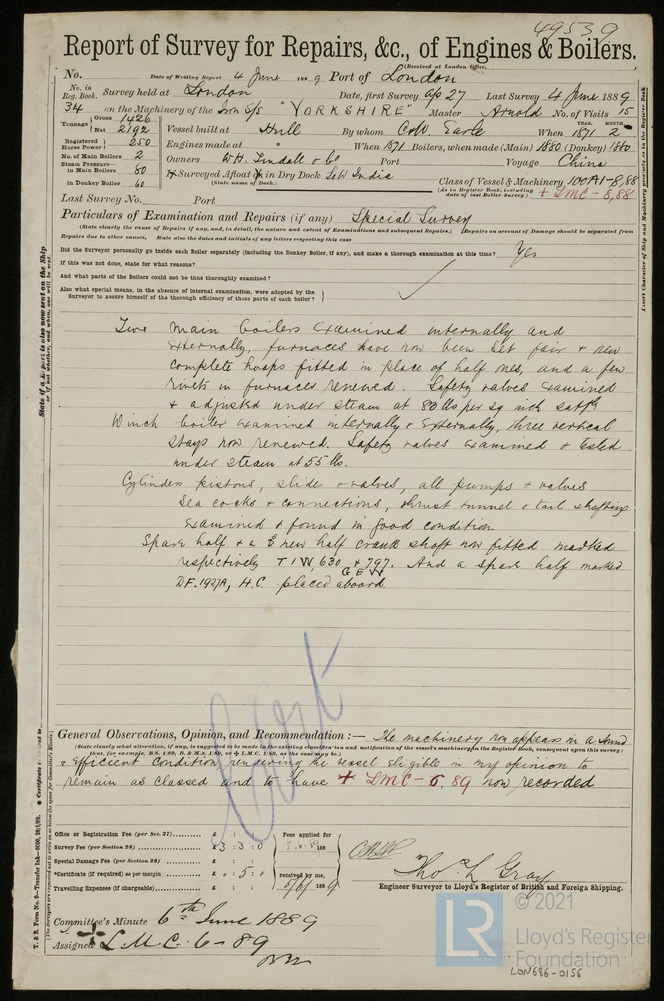 49539
Report of Survey for Repairs, &c., of Engines & Boilers.
(Received at London Office,
No. Date of Writing Report 4 June 1889 Port of London
No. in Reg. Book. Survey held at London Date, first Survey Ap 27 Last Survey 4 June 1889
34 on the Machinery of the Iron S/S "YORKSHIRE" Master Arnold No. of Visits 15
Tonnage Gross 1426
Net 2192 Vessel built at Hull By whom C & W. Earle When YEAR. 1871 MONTH 2
Registered Horse Power 250 Engines made at " When 1871 Boilers, when made (Main) 1880 (Donkey) 1880
No. of Main Boilers 2 Owners W.H. Tindall & Co Port Voyage China
Steam Pressure in Main Boilers 80 If Surveyed Afloat or in Dry Dock S & W India
(State name of Dock.)
in Donkey Boiler 60 Class of Vessel & Machinery 100A1-8,88
(As in Register Book, including date of last Boiler Survey.) + LMC-8,88
Last Survey No. Port
Particulars of Examination and Repairs (if any) Special Survey
(State clearly the cause of Repairs if any, and, in detail, the nature and extent of Examinations and subsequent Repairs.) (Repairs on account of Damage should be separated from
Repairs due to other causes. State also the dates and initials of any letters respecting this case
Did the Surveyor personally go inside each Boiler separately (including the Donkey Boiler, if any), and make a thorough examination at this time? Yes
If this was not done, state for what reasons?
And what parts of the Boilers could not be thus thoroughly examined?
Also what special means, in the absence of internal examination, were adopted by the
Surveyor to assure himself of the thorough efficiency of those parts of each boiler?
Two main boilers examined internally and
externally, furnaces have now been set fair & new
complete hoops fitted in place of half ones, and a few
rivets in furnaces renewed. Safety valves examined
& adjusted under steam at 80 lbs per sq inch satfy
Winch boiler examined internally & externally, three vertical
stays now renewed. Safety valves examined & tested
under steam at 55 lbs.
Cylinders pistons, slide & valves, all pumps & valves
sea cocks & connections, thrust tunnel & tail shafting
examined & found in good condition
Spare half & a new half crank shaft now fitted marked
respectively T I W, 630 & 797. And a spare half marked
G E W
DF.1927A, H.C. placed aboard.
General Observations, Opinion, and Recommendation:— The machinery now appears in a sound
(State clearly what alteration, if any, is suggested to be made in the existing classification and notification of the vessel's machinery in the Register Book, consequent upon this survey;
thus, for example, B.S. 1/89, B. & M.S. 1/89, or + L.M.C. 1/89, as the case may be.)
& efficient condition rendering the vessel eligible in my opinion to
remain as classed and to have + LMC-6.89 now recorded
Office or Registration Fee (per Sec. 27) £ : :
Survey Fee (per Section 28) £3 : 3 : 0
Special Damage Fee (per Section 28) £ : :
*Certificate (if required) as per margin £ : 5 : 0
Travelling Expenses (if chargeable) £ : :
Fees applied for
5.6.1889
received by me,
5/6/1889
Tho L Gray
Engineer Surveyor to Lloyd's Register of British and Foreign Shipping.
Committee's Minute 6th June 1889
Assigned + L.M.C. 6-89
© 2021
LR
Lloyd's Register
Foundation
LON686-0156